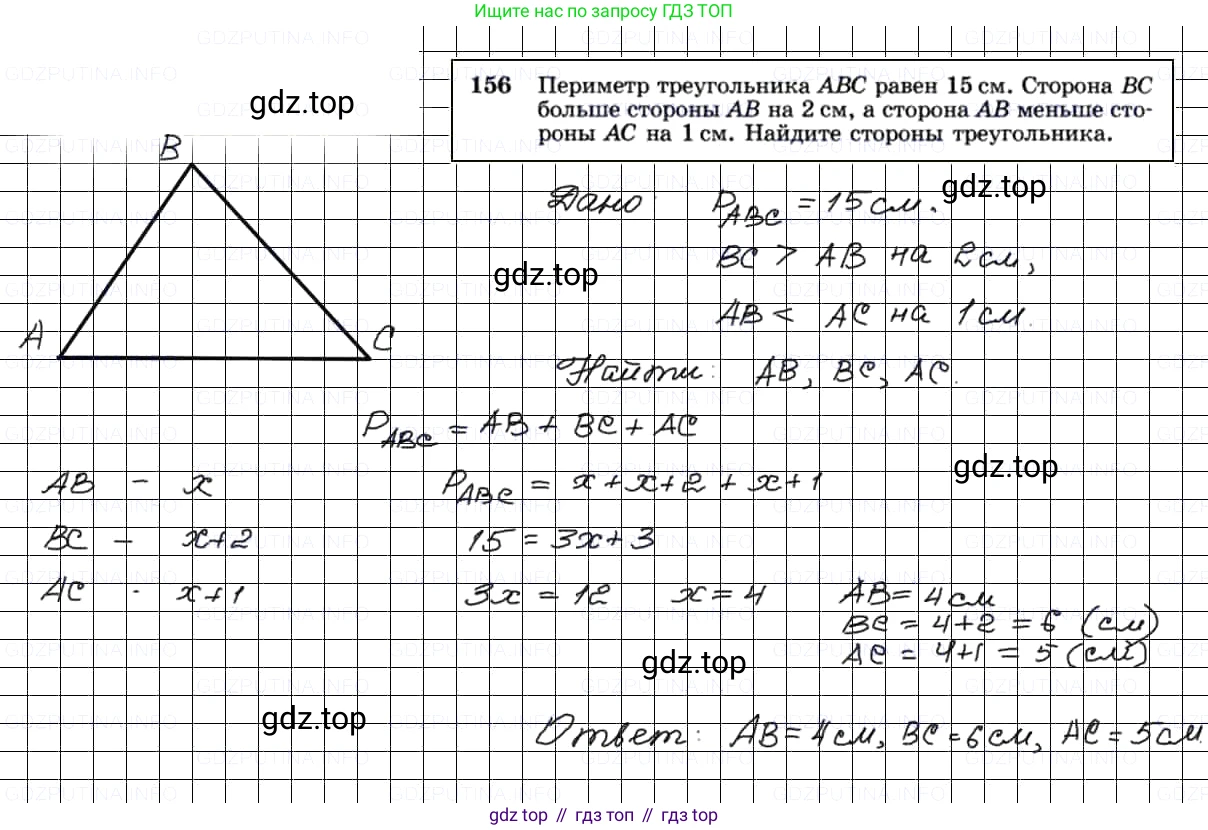 Ищите нас по запросу ГДЗ ТОП
156 Периметр треугольника ABC равен 15 см. Сторона BC
больше стороны AB на 2 см, а сторона AB меньше сто-
роны AC на 1 см. Найдите стороны треугольника.
gdz.top
B
A
C
Дано: P_ABC = 15 см.
gdz.top
BC > AB на 2 см,
gdz.top
AB < AC на 1 см.
Найти: AB, BC, AC.
P_ABC = AB + BC + AC
gdz.top
AB - x
P_ABC = x + x + 2 + x + 1
BC - x+2
15 = 3x + 3
AC - x+1
3x = 12 x = 4
AB = 4 см
BC = 4+2 = 6 (см)
AC = 4+1 = 5 (см)
gdz.top
gdz.top
Ответ: AB = 4 см, BC = 6 см, AC = 5 см
gdz top // гдз топ // гдз top
GDZPUTINA.INFO